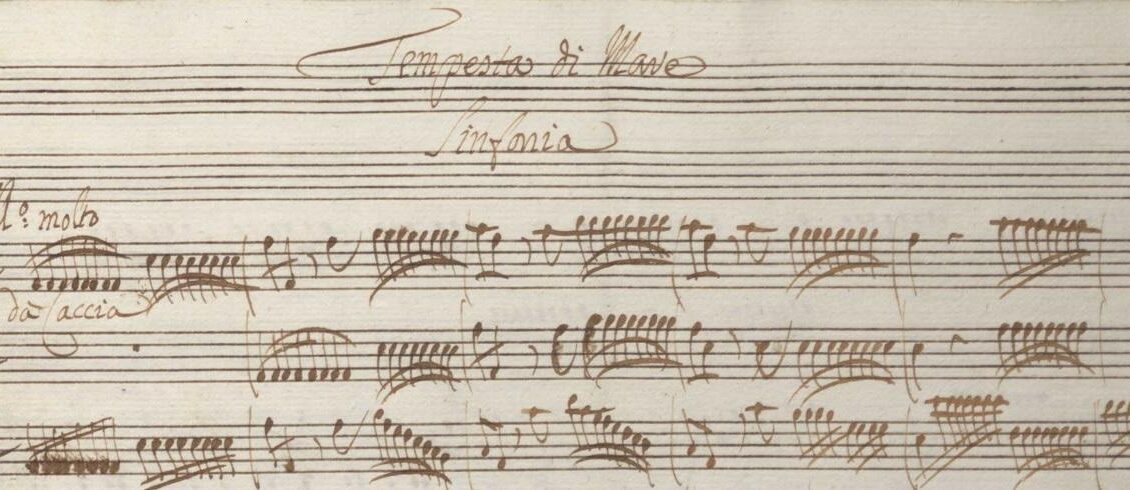 Tempesta di Mare
Sinfonia
All.º molto
da Caccia